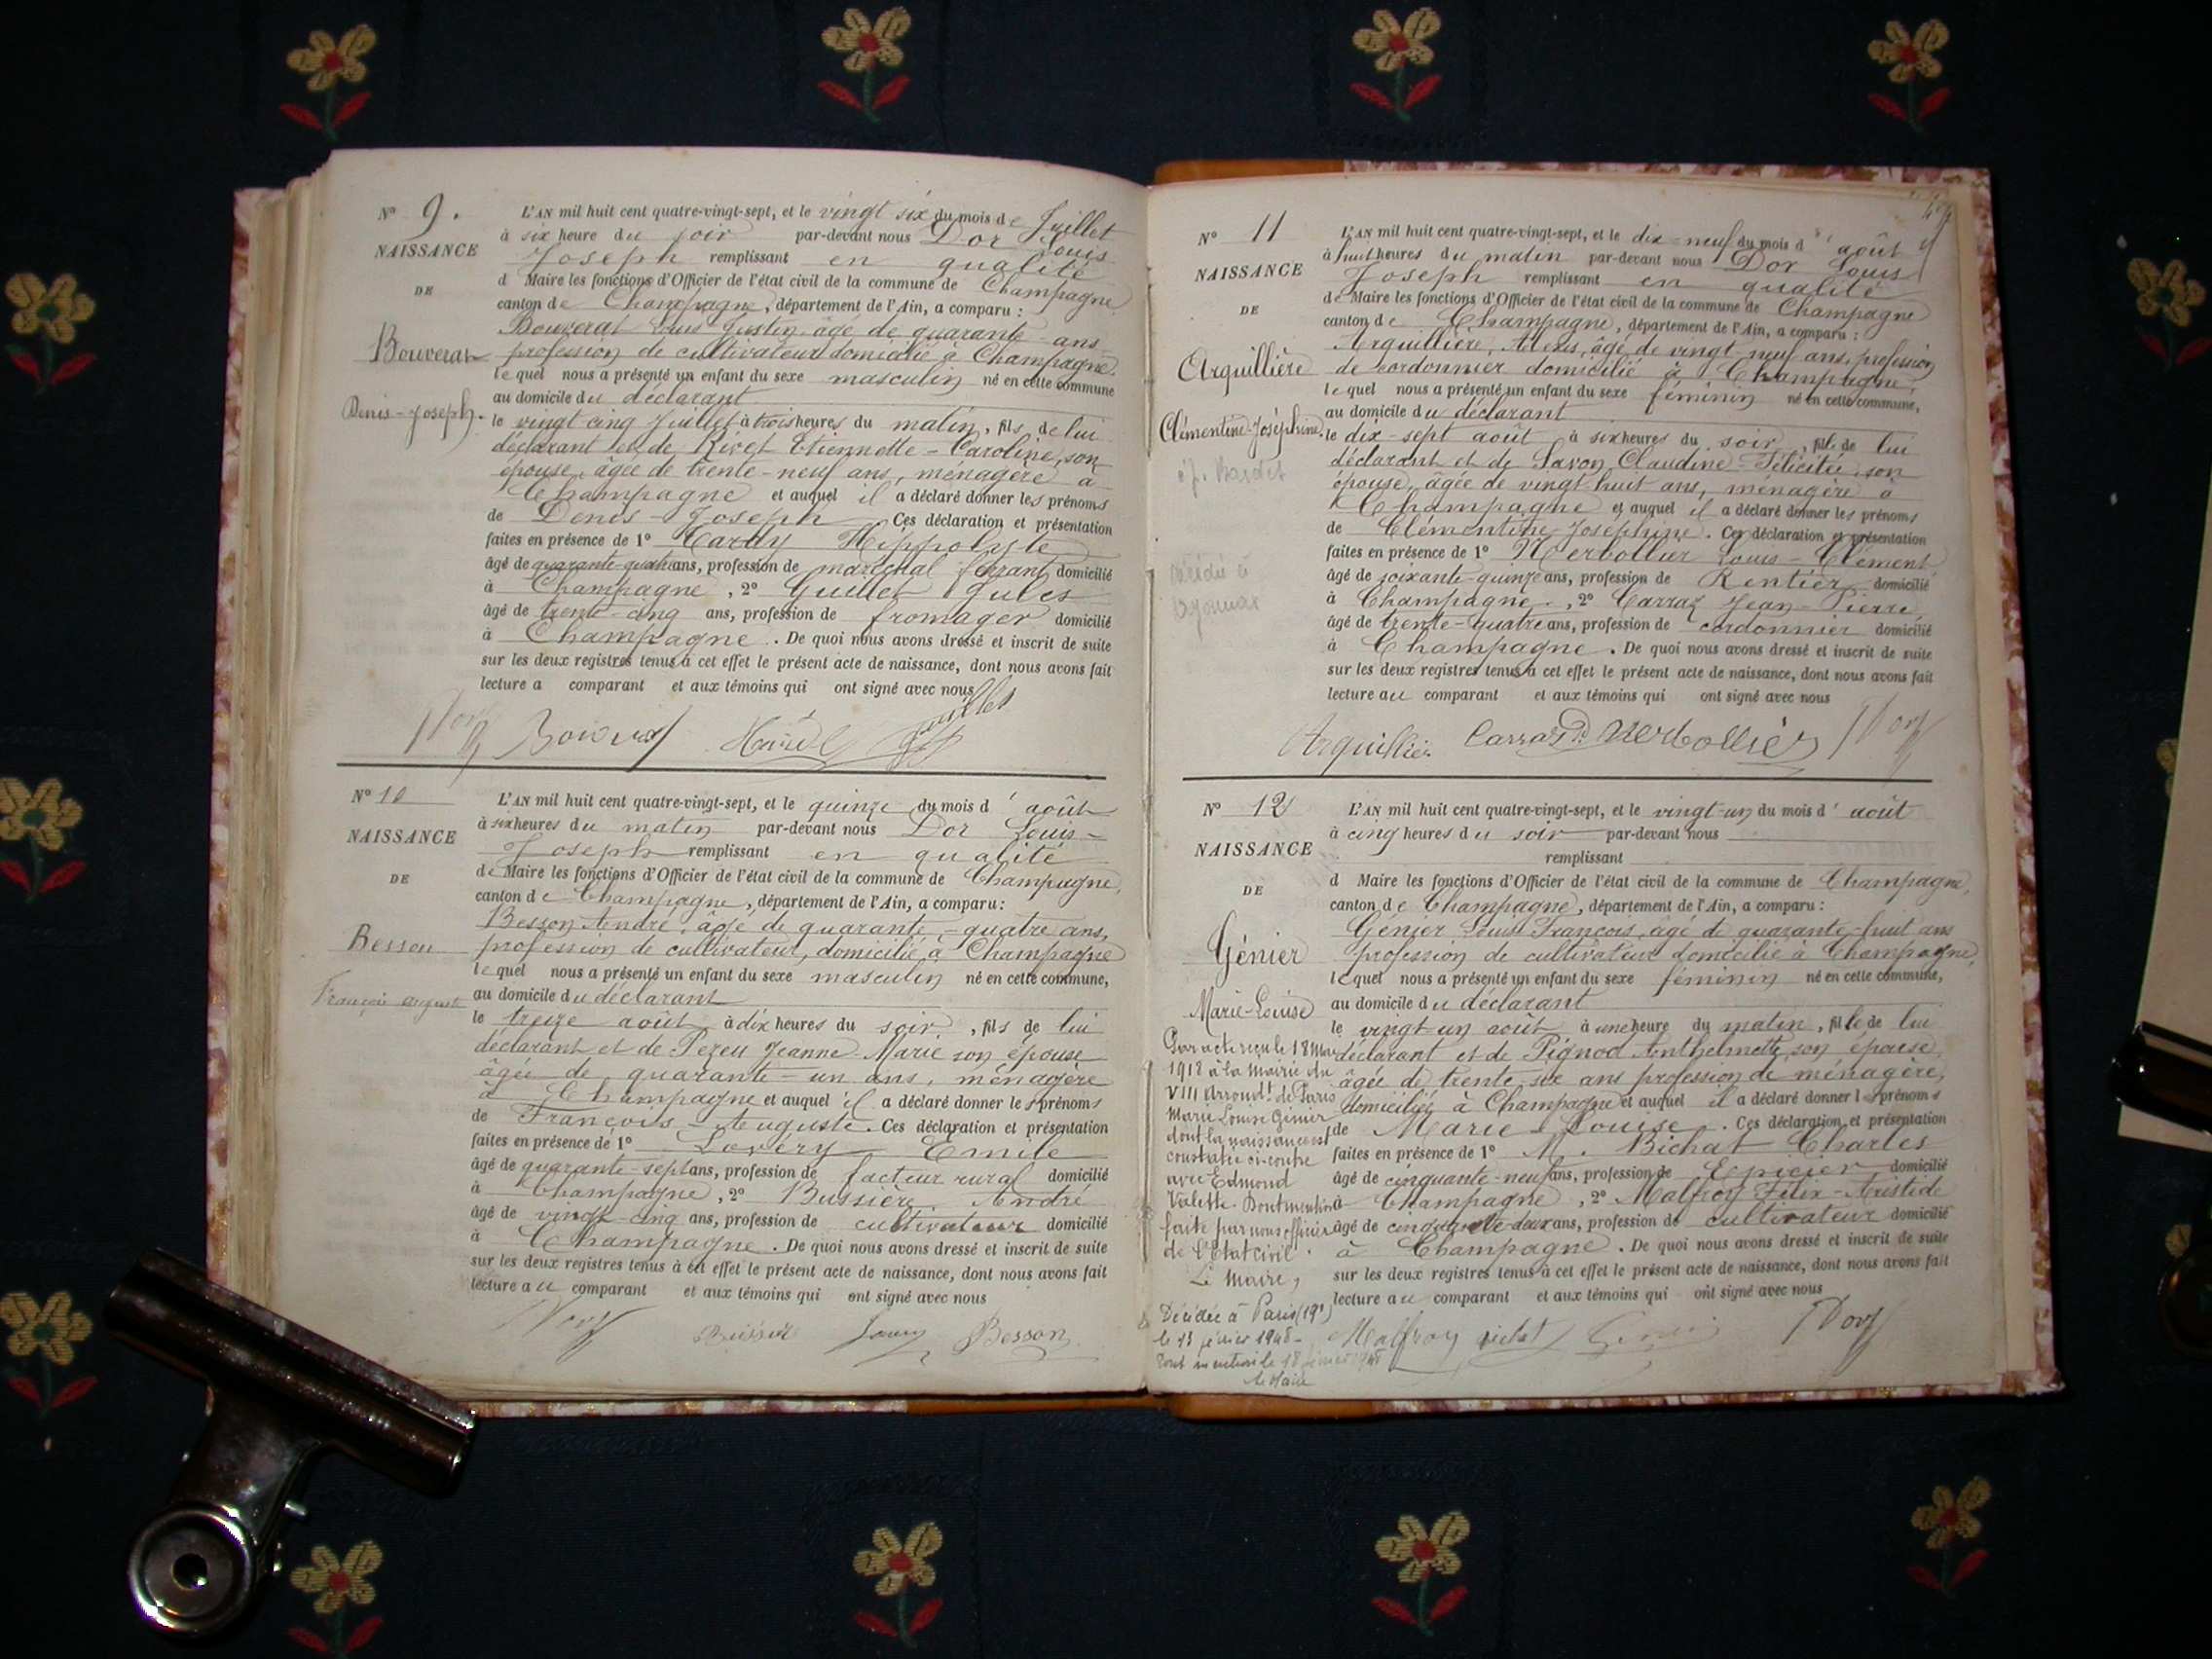 N° 9.
NAISSANCE
DE
Bouverat
Denis-Joseph.
L'AN mil huit cent quatre-vingt-sept, et le vingt six du mois de Juillet
à six heure du soir par-devant nous Dor Louis
Joseph remplissant en qualité
d Maire les fonctions d'Officier de l'état civil de la commune de Champagne
canton de Champagne, département de l'Ain, a comparu :
Bouverat Louis Justin âgé de quarante ans
profession de cultivateur domicilié à Champagne.
lequel nous a présenté un enfant du sexe masculin né en cette commune
au domicile du déclarant
le vingt cinq Juillet à trois heures du matin, fils de lui
déclarant et de Rivet Etiennette-Caroline, son
épouse, âgée de trente-neuf ans, ménagère à
Champagne et auquel il a déclaré donner les prénoms
de Denis-Joseph. Ces déclaration et présentation
faites en présence de 1° Hippolyte
âgé de quarante-quatre ans, profession de maréchal ferrant domicilié
à Champagne, 2° Guillet Jules
âgé de trente-cinq ans, profession de fromager domicilié
à Champagne. De quoi nous avons dressé et inscrit de suite
sur les deux registres tenus à cet effet le présent acte de naissance, dont nous avons fait
lecture a comparant et aux témoins qui ont signé avec nous
Dor Bouverat
N° 10
NAISSANCE
DE
Besson
François Auguste
L'AN mil huit cent quatre-vingt-sept, et le quinze du mois d'août
à six heures du matin par-devant nous Dor Louis-
Joseph remplissant en qualité
de Maire les fonctions d'Officier de l'état civil de la commune de Champagne,
canton de Champagne, département de l'Ain, a comparu :
Besson André, âgé de quarante-quatre ans,
profession de cultivateur, domicilié à Champagne
lequel nous a présenté un enfant du sexe masculin né en cette commune,
au domicile du déclarant
le treize août à dix heures du soir, fils de lui
déclarant et de Pezeu Jeanne-Marie son épouse
âgée de quarante-un ans, ménagère
à Champagne et auquel il a déclaré donner les prénoms
de François-Auguste. Ces déclaration et présentation
faites en présence de 1° Emile
âgé de quarante-sept ans, profession de facteur rural domicilié
à Champagne, 2° Bussière André
âgé de vingt-cinq ans, profession de cultivateur domicilié
à Champagne. De quoi nous avons dressé et inscrit de suite
sur les deux registres tenus à cet effet le présent acte de naissance, dont nous avons fait
lecture au comparant et aux témoins qui ont signé avec nous
Dor Besson
N° 11
NAISSANCE
DE
Arguillière
Clémentine-Joséphine.
L'AN mil huit cent quatre-vingt-sept, et le dix-neuf du mois d'août
à huit heures du matin par-devant nous Dor Louis
Joseph remplissant en qualité
de Maire les fonctions d'Officier de l'état civil de la commune de Champagne
canton de Champagne, département de l'Ain, a comparu :
Arguillière, Alexis, âgé de vingt neuf ans, profession
de cordonnier domicilié à Champagne,
lequel nous a présenté un enfant du sexe féminin né en cette commune,
au domicile du déclarant
le dix-sept août à six heures du soir, fille de lui
déclarant et de Savon Claudine-Félicitée, son
épouse, âgée de vingt-huit ans, ménagère à
Champagne et auquel il a déclaré donner les prénoms
de Clémentine-Joséphine. Ces déclaration et présentation
faites en présence de 1° Louis-Clément
âgé de soixante-quinze ans, profession de Rentier domicilié
à Champagne, 2° Carraz Jean-Pierre
âgé de trente-quatre ans, profession de cordonnier domicilié
à Champagne. De quoi nous avons dressé et inscrit de suite
sur les deux registres tenus à cet effet le présent acte de naissance, dont nous avons fait
lecture au comparant et aux témoins qui ont signé avec nous
Arguillière Carraz Dor
N° 12
NAISSANCE
DE
Génier
Marie-Louise
Par acte reçu le 18 Mai
1918 à la Mairie du
VIII Arrondt. de Paris
Marie Louise Génier
dont la naissance est
constatée ci-contre
avec Edmond
Valette. Dont mention
faite par nous officier
de l'Etat civil.
Le Maire,
Décédée à Paris (19e)
le 13 février 1948-
Dont mention le 18 février 1948
Le Maire
L'AN mil huit cent quatre-vingt-sept, et le vingt-un du mois d'août
à cinq heures du soir par-devant nous
remplissant
d Maire les fonctions d'Officier de l'état civil de la commune de Champagne,
canton de Champagne, département de l'Ain, a comparu :
Génier Louis François, âgé de quarante-huit ans
profession de cultivateur domicilié à Champagne,
lequel nous a présenté un enfant du sexe féminin né en cette commune,
au domicile du déclarant
le vingt-un août à une heure du matin, fille de lui
déclarant et de Pignod Anthelmette, son épouse,
âgée de trente-six ans profession de ménagère,
domiciliée à Champagne et auquel il a déclaré donner l s prénoms
de Marie-Louise. Ces déclaration et présentation
faites en présence de 1° M. Bichat Charles
âgé de cinquante-neuf ans, profession de Epicier domicilié
à Champagne, 2° Malfroy Félix-Aristide
âgé de cinquante-deux ans, profession de cultivateur domicilié
à Champagne. De quoi nous avons dressé et inscrit de suite
sur les deux registres tenus à cet effet le présent acte de naissance, dont nous avons fait
lecture au comparant et aux témoins qui ont signé avec nous
Malfroy Bichat Génier Dor